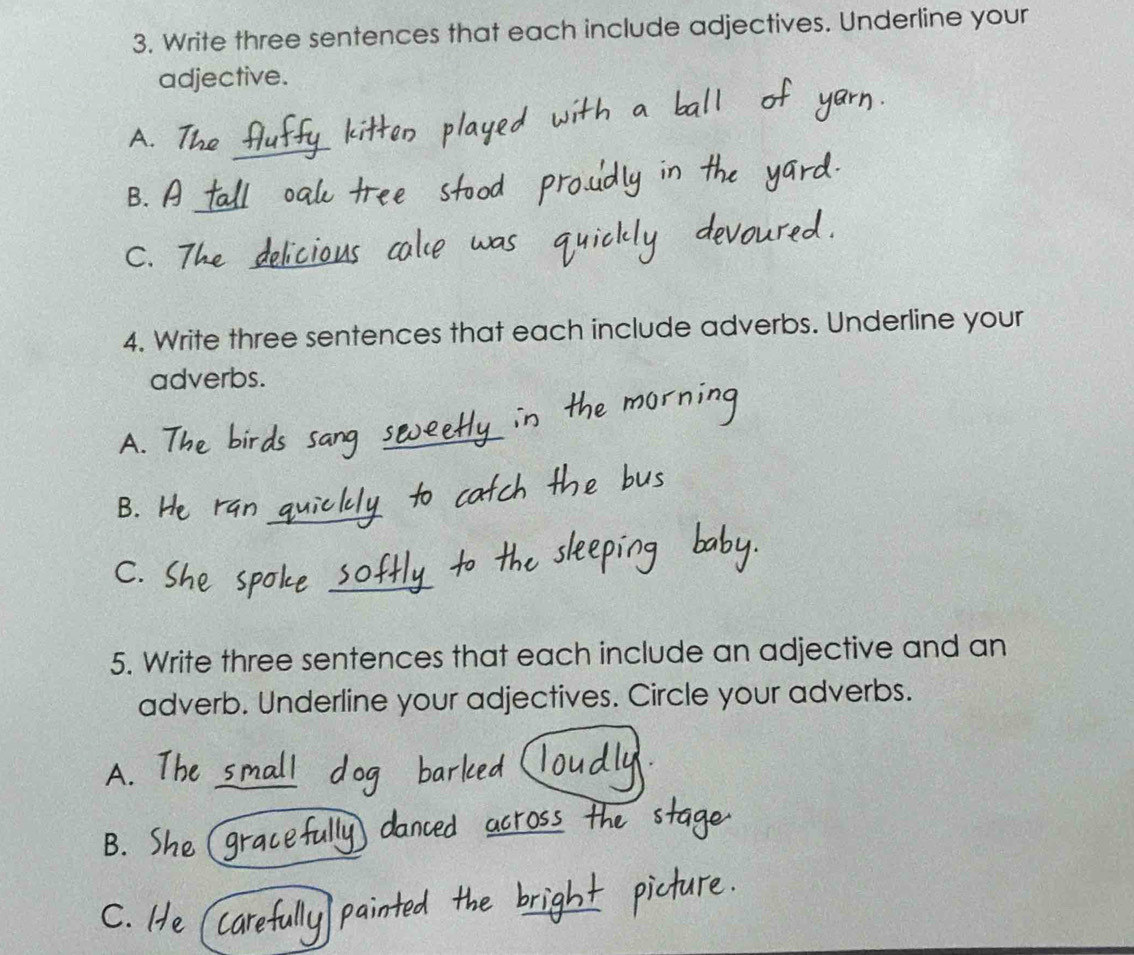 3. Write three sentences that each include adjectives. Underline your
adjective.
A. The fluffy kitten played with a ball of yarn.
B. A tall oak tree stood proudly in the yard.
C. The delicious cake was quickly devoured.
4. Write three sentences that each include adverbs. Underline your
adverbs.
A. The birds sang sweetly in the morning
B. He ran quickly to catch the bus
C. She spoke softly to the sleeping baby.
5. Write three sentences that each include an adjective and an
adverb. Underline your adjectives. Circle your adverbs.
A. The small dog barked loudly.
B. She gracefully danced across the stage.
C. He carefully painted the bright picture.